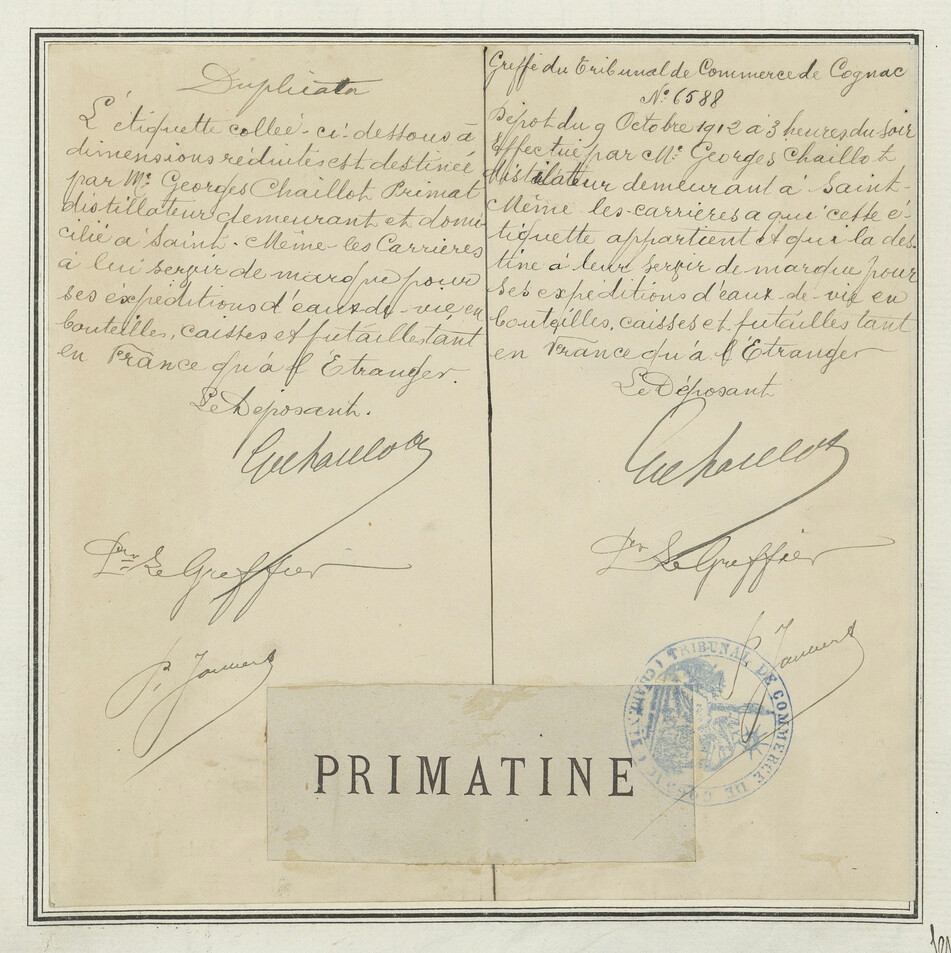 Duplicata
L'étiquette collée-ci-dessous à
dimensions réduites est destinée
par Mr. Georges Chaillot Primat
distillateur demeurant et domi-
cilié à Saint-Même-les Carrières
à lui servir de marque pour
ses éxpéditions d'eaux de-vie, en
bouteilles, caisses et futailles tant
en France qu'à l'Etranger.
Le Déposant.
GChaillot
Per Le Greffier
Greffe du Tribunal de Commerce de Cognac
No. 6588
Dépot du 9 Octobre 1912 à 3 heures du soir
Effectué par Mr. Georges Chaillot
distilateur demeurant à Saint-
Même les-carrières a qui cette é-
tiquette appartient et qui la des-
tine à leur servir de marque pour
ses expéditions d'eaux-de-vie en
bouteilles, caisses et futailles tant
en France qu'à l'Etranger
Le Déposant
GChaillot
Per Le Greffier
TRIBUNAL DE COMMERCE DE COGNAC (CHARENTE)
PRIMATINE